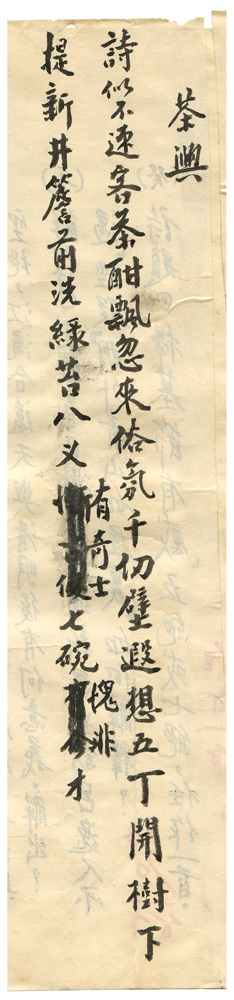 茶興
詩似不速客茶酣飄忽來俗氛千仞壁遐想五丁開樹下
提新井簷前洗綠苔八叉有奇士七碗愧非才